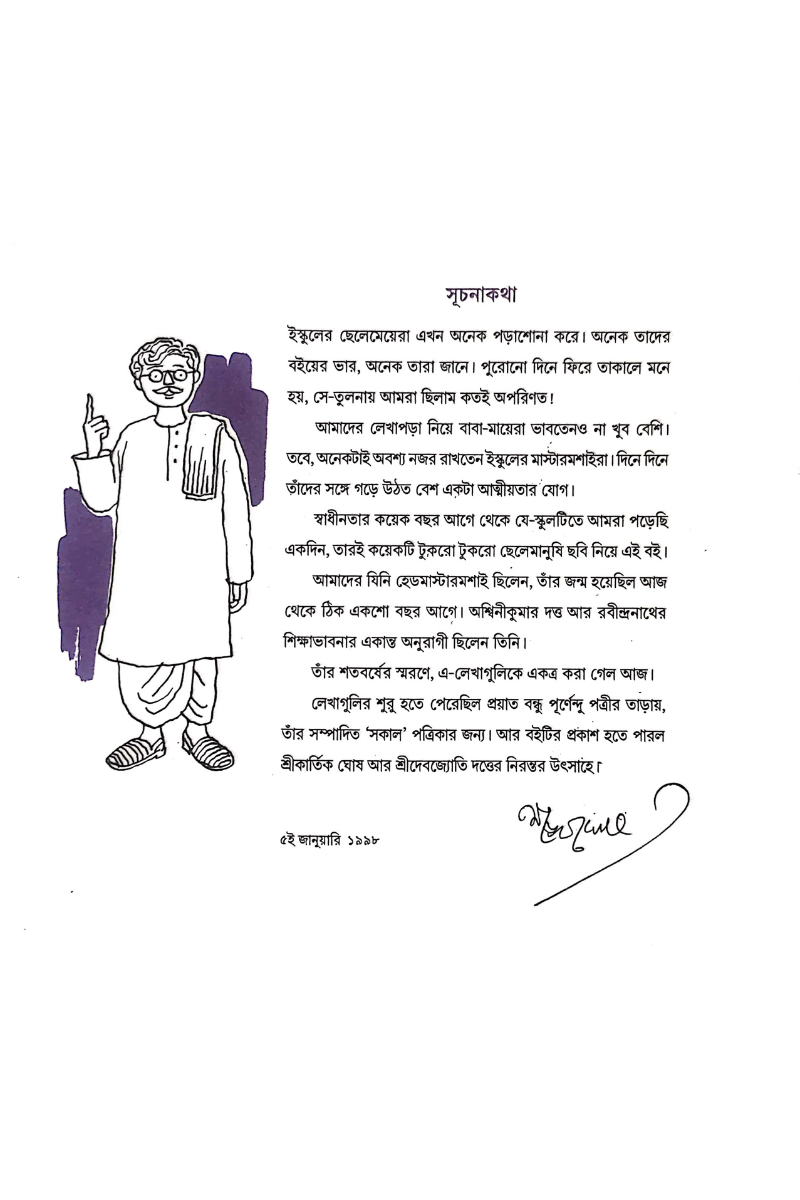 সূচনাকথা
ইস্কুলের ছেলেমেয়েরা এখন অনেক পড়াশোনা করে। অনেক তাদের
বইয়ের ভার, অনেক তারা জানে। পুরোনো দিনে ফিরে তাকালে মনে
হয়, সে-তুলনায় আমরা ছিলাম কতই অপরিণত!
আমাদের লেখাপড়া নিয়ে বাবা-মায়েরা ভাবতেনও না খুব বেশি।
তবে, অনেকটাই অবশ্য নজর রাখতেন ইস্কুলের মাস্টারমশাইরা। দিনে দিনে
তাঁদের সঙ্গে গড়ে উঠত বেশ একটা আত্মীয়তার যোগ।
স্বাধীনতার কয়েক বছর আগে থেকে যে-স্কুলটিতে আমরা পড়েছি
একদিন, তারই কয়েকটি টুকরো টুকরো ছেলেমানুষি ছবি নিয়ে এই বই।
আমাদের যিনি হেডমাস্টারমশাই ছিলেন, তাঁর জন্ম হয়েছিল আজ
থেকে ঠিক একশো বছর আগে। অশ্বিনীকুমার দত্ত আর রবীন্দ্রনাথের
শিক্ষাভাবনার একান্ত অনুরাগী ছিলেন তিনি।
তাঁর শতবর্ষের স্মরণে, এ-লেখাগুলিকে একত্র করা গেল আজ।
লেখাগুলির শুরু হতে পেরেছিল প্রয়াত বন্ধু পূর্ণেন্দু পত্রীর তাড়ায়,
তাঁর সম্পাদিত ‘সকাল’ পত্রিকার জন্য। আর বইটির প্রকাশ হতে পারল
শ্রীকার্তিক ঘোষ আর শ্রীদেবজ্যোতি দত্তের নিরন্তর উৎসাহে।
৫ই জানুয়ারি ১৯৯৮